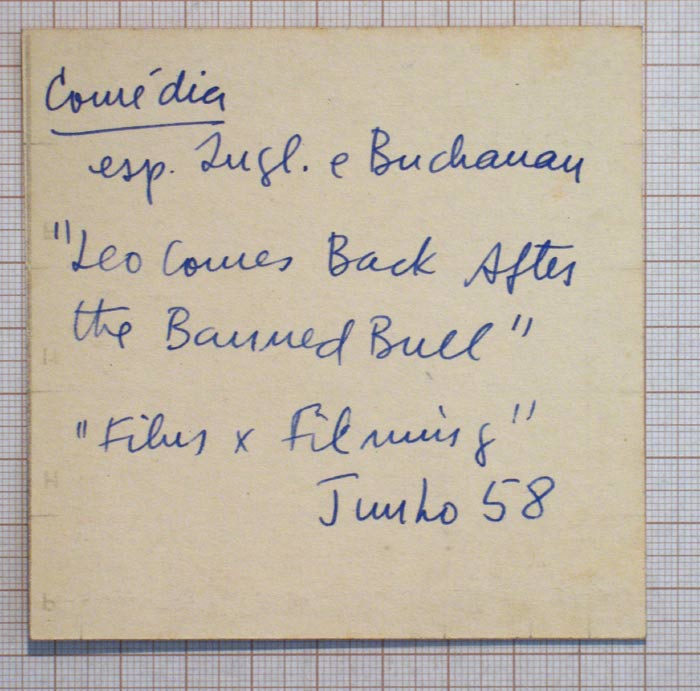 Comédia
esp. Ingl. e Buchanan
"Leo Comes Back After
the Banned Bull"
"Films x Filming"
Junho 58